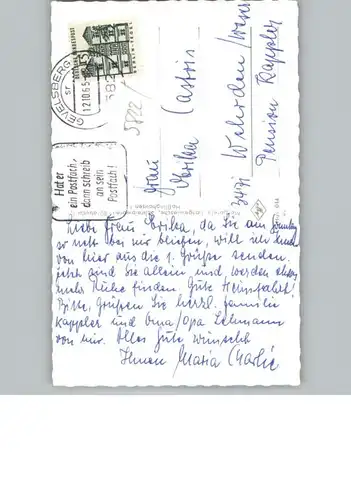 GEVELSBERG
12.10.65
DEUTSCHE BUNDESPOST
15
Hat er
ein Postfach,
dann schreib
an sein
Postfach!
5822
Frau
Erika Castris
3471 Wehrden/Weser
Pension Kappler
Liebe Frau Erika, da Sie am Sonntag
so nett bei mir bleiben, will ich Ihnen
von hier aus die 1. Grüße senden.
Jetzt sind Sie allein und werden etwas
mehr Ruhe finden. Gute Heimfahrt!
Bitte, grüßen Sie herzl. Familie
Kappler und Oma/Opa Lehmann
von mir. Alles Gute wünscht
Ihnen Maria Charlie